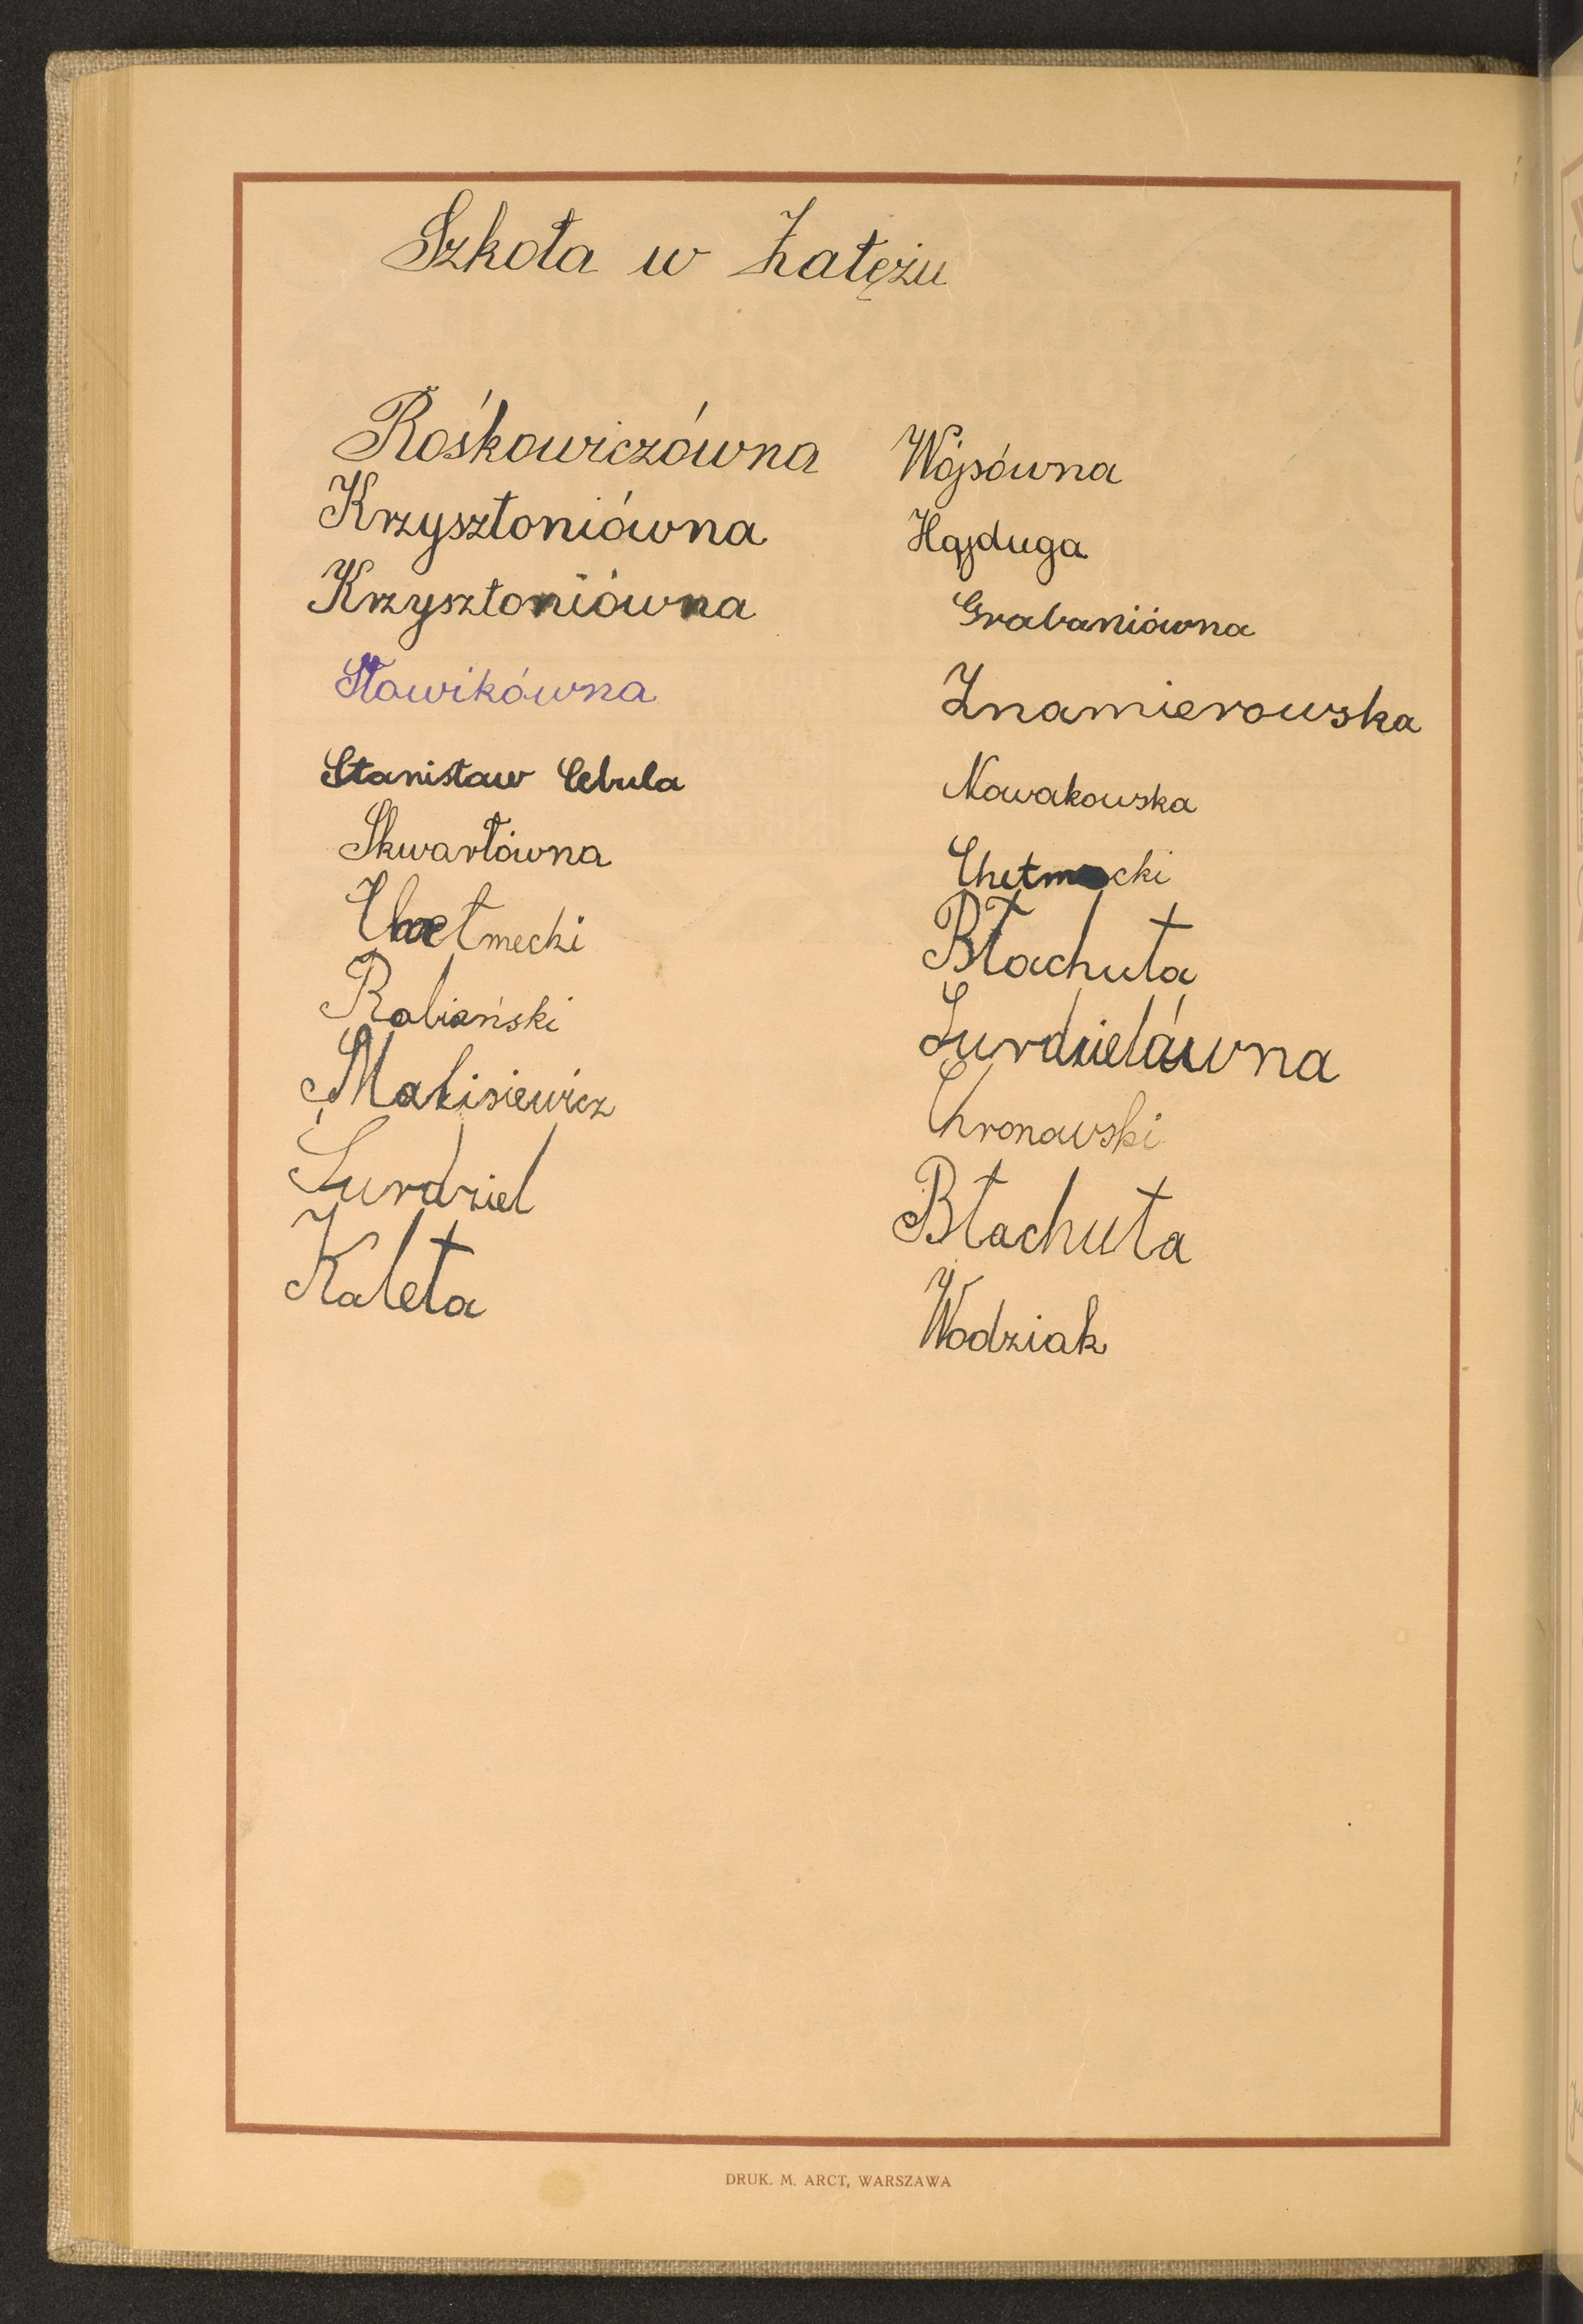 Szkoła w Załężu
Rośkowiczówna
Krzysztoniówna
Krzysztoniówna
Słowikówna
Stanisław Cebula
Skwarłówna
Chełmecki
Rabiański
Malisiewicz
Surdziel
Kaleta
Wójsówna
Hajduga
Grabaniówna
Znamierowska
Nowakowska
Chełmecki
Błachuta
Surdzielówna
Chronowski
Błachuta
Wodziak
DRUK. M. ARCT, WARSZAWA